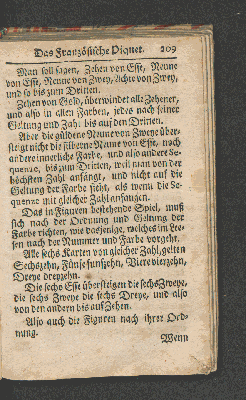 Das Französische Piquet. 209
Man soll sagen, Zehen von Esse, Neune
von Esse, Neune von Zwey, Achte von Zwey,
und so bis zum Dritten.
Zehen von Gold, überwindet alle Zehener,
und also in allen Farben, jedes nach seiner
Geltung und Zahl bis auf den Dritten.
Aber die güldene Neune von Zweye über-
steiget nicht die silberne Neune von Esse, noch
andere innerliche Farbe, und also andere Se-
quenze, bis zum Dritten, weil man von der
höchsten Zahl anfängt, und nicht auf die
Geltung der Farbe sieht, als wenn die Se-
quenze mit gleicher Zahl anfangen.
Das in Figuren bestehende Spiel, muß
sich nach der Ordnung und Geltung der
Farbe richten, wie dasjenige, welches im Les-
sen nach der Nummer und Farbe vorgeht.
Alle sechs Karten von gleicher Zahl, gelten
Sechszehn, Fünfe funfzehn, Viere vierzehn,
Dreye dreyzehn.
Die sechs Esse übersteigen die sechs Zweye,
die sechs Zweye die sechs Dreye, und also
von den andern bis auf Zehen.
Also auch die Figuren nach ihrer Ord-
nung.
Wenn